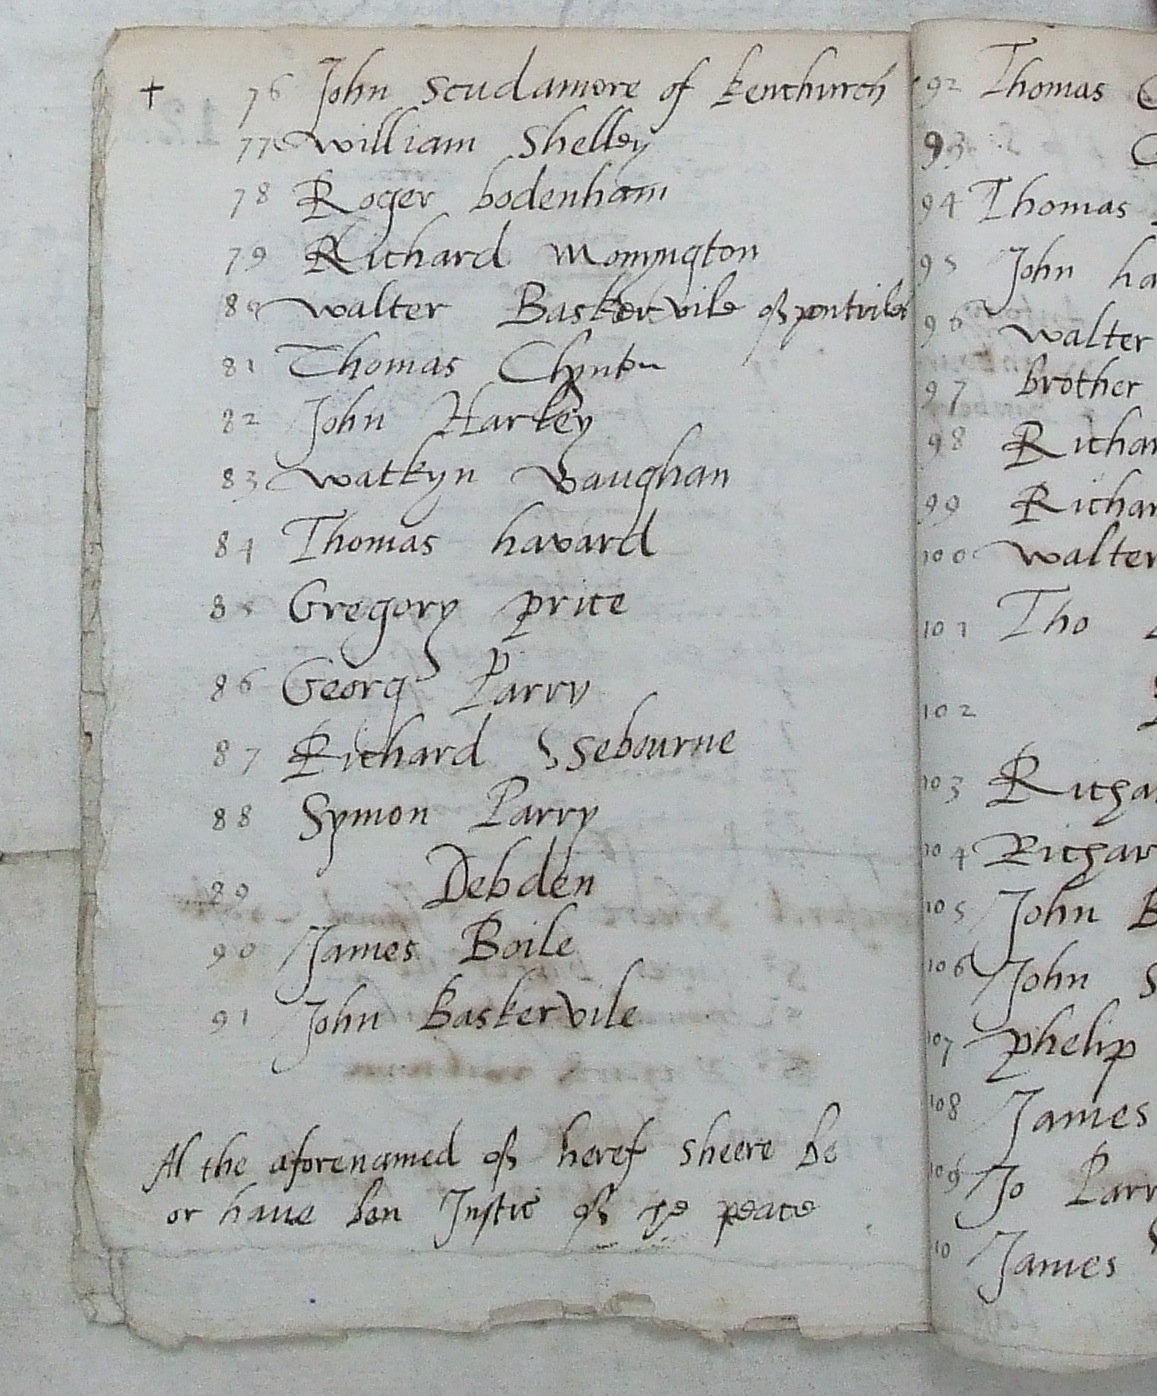 + 76 John Scudamore of kenchurch
77 william Shelley
78 Roger bodenham
79 Richard Monyngton
80 walter Baskervile of
81 Thomas Clynton
82 John Harley
83 watkyn vaughan
84 Thomas havard
85 Gregory price
86 Georg Parry
87 Richard Sebourne
88 Symon Parry
89 Debden
90 James Boile
91 John Baskervile
Al the aforenamed of heref sheere be
or haue ben Justic of ye peace
92 Thomas
93
94 Thomas
95 John ha
96 walter
97 brother
98 Richar
99 Richar
100 walter
101 Tho
102
103 Richa
104 Richar
105 John B
106 John S
107 phelip
108 James
109 Jo Parr
10 James